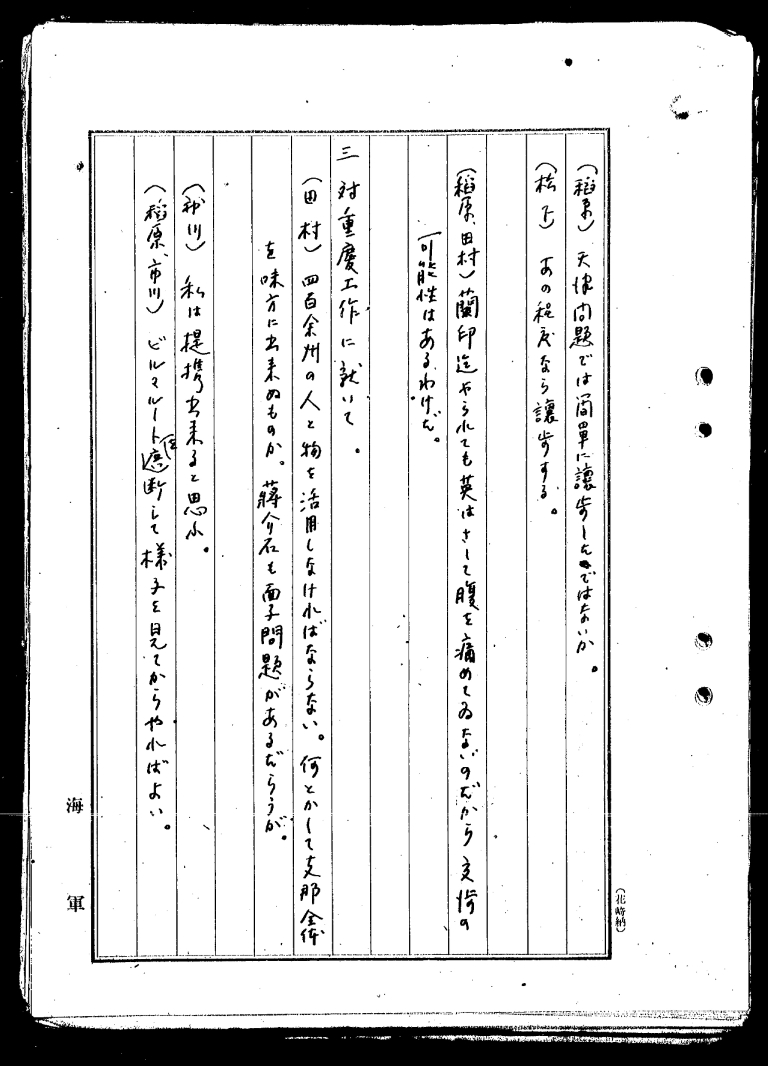 (稲原) 天津問題では簡単に譲歩したではないか。
(松下) あの程度なら譲歩する。
(稲原、田村) 蘭印迄やられても英はさして腹を痛めてゐないのだから交渉の
可能性はあるわけだ。
三 対重慶工作に就いて。
(田村) 四百余州の人と物を活用しなければならない。何とかして支那全体
を味方に出来ぬものか。蒋介石も面子問題があるだらうが。
(市川) 私は提携出来ると思ふ。
(稲原、市川) ビルマルート遮断して様子を見てからやればよい。
海軍
(花崎納)